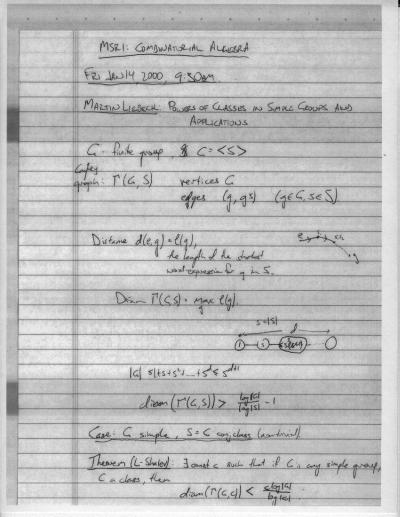 MSRI: COMBINATORIAL ALGEBRA
FRI JAN 14, 2000, 9:30am.
MARTIN LIEBECK: POWERS OF CLASSES IN SIMPLE GROUPS AND
APPLICATIONS
G: finite group, G = <S>
Cayley
graph: Γ(G, S) vertices G
edges (g, gs) (g∈G, s∈S)
Distance d(e,g) = l(g),
the length of the shortest
word expression for g in S.
Diam Γ(G,S) = max l(g).
g
s=|S|
d
|G| ≤ 1+s+s²+...+s^d ≤ s^{d+1}
diam(Γ(G,S)) > log|G| / log|S| - 1
Case: G simple, S = C conj. class (nontrivial).
Theorem (L-Shalev): ∃ const c such that if G is any simple group,
C a class, then
diam(Γ(G,C)) < c log|G| / log|C|